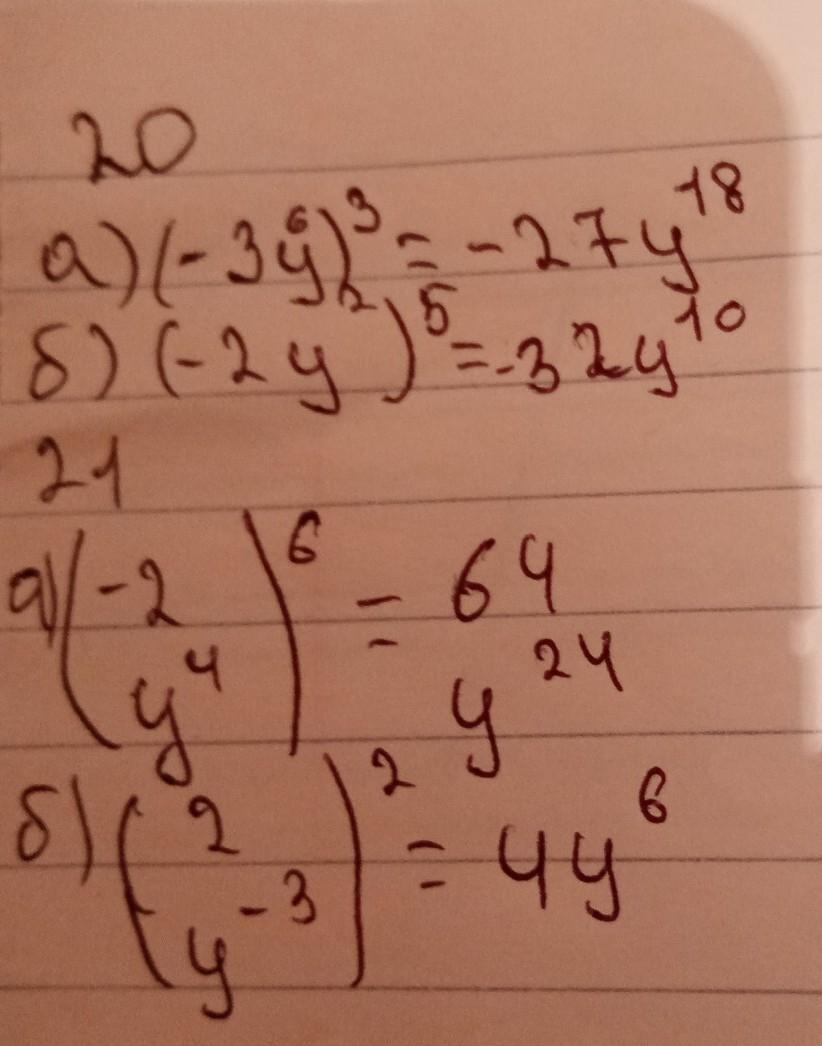 20
а) (-3y⁶)³ = -27y¹⁸
б) (-2y²)⁵ = -32y¹⁰
21
а) (-2/y⁴)⁶ = 64/y²⁴
б) (2/y⁻³)² = 4y⁶